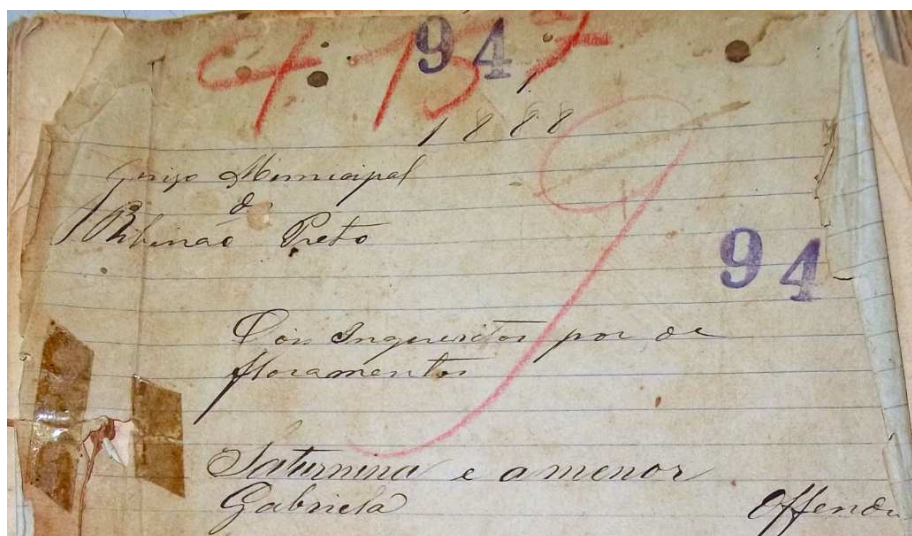 94
1888
Juizo Municipal
de
Ribeirão Preto
94
Dois Inqueritos por de
floramentos
Saturnina e a menor
Gabriela Offendi